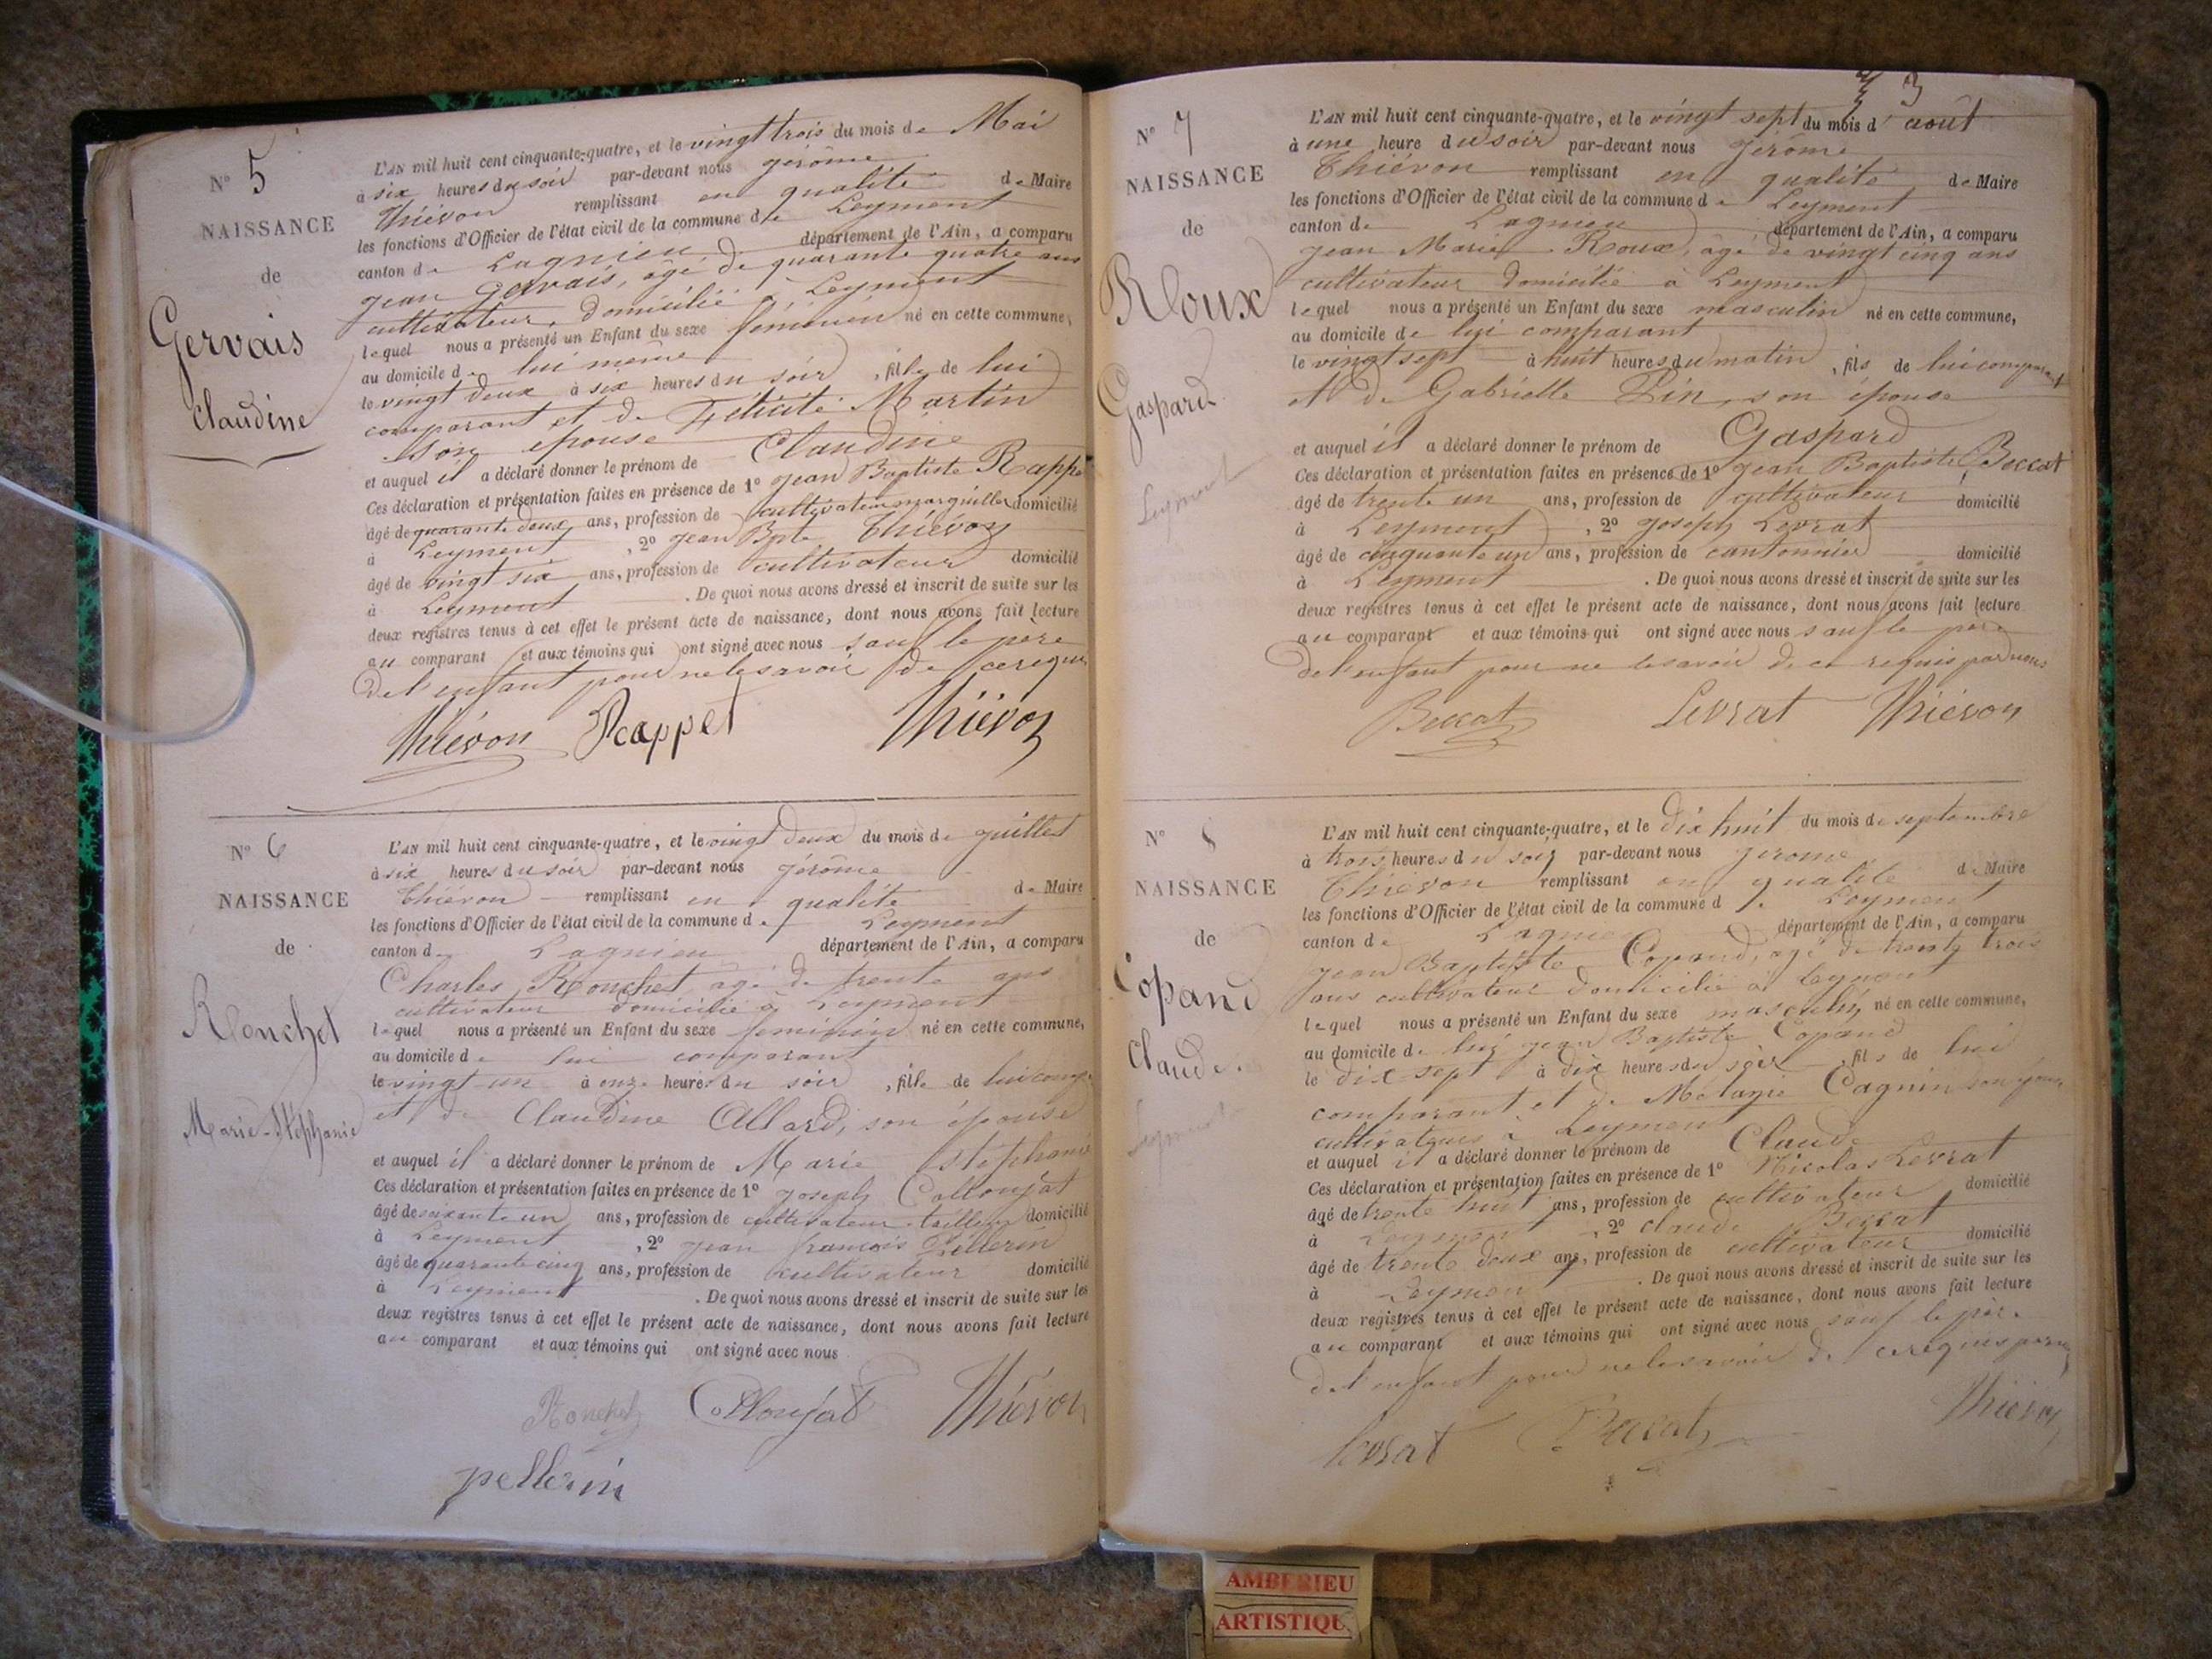 N° 5
NAISSANCE
de
Gervais
Claudine
L'AN mil huit cent cinquante-quatre, et le vingt trois du mois de Mai
à six heures du soir par-devant nous jérôme
Thiévon remplissant en qualité de Maire
les fonctions d'Officier de l'état civil de la commune de Leyment
canton de Lagnieu département de l'Ain, a comparu
jean Gervais, âgé de quarante quatre ans
cultivateur, domicilié à Leyment
lequel nous a présenté un Enfant du sexe féminin né en cette commune,
au domicile de lui même
le vingt deux à six heures du soir, fille de lui
comparant et de Félicité Martin
son épouse
et auquel il a déclaré donner le prénom de Claudine
Ces déclaration et présentation faites en présence de 1° jean Baptiste Rappet
âgé de quarante deux ans, profession de cultivateur marguiller domicilié
à Leyment, 2° jean Bpte Thiévon
âgé de vingt six ans, profession de cultivateur domicilié
à Leyment. De quoi nous avons dressé et inscrit de suite sur les
deux registres tenus à cet effet le présent acte de naissance, dont nous avons fait lecture
au comparant et aux témoins qui ont signé avec nous sauf le père
de l'enfant pour ne le savoir de ce requis
Thiévon Rappet Thiévon
N° 6
NAISSANCE
de
Ronchet
Marie-Stéphanie
L'AN mil huit cent cinquante-quatre, et le vingt deux du mois de juillet
à six heures du soir par-devant nous jérôme
Thiévon remplissant en qualité de Maire
les fonctions d'Officier de l'état civil de la commune de Leyment
canton de Lagnieu département de l'Ain, a comparu
Charles Ronchet agé de trente ans
cultivateur domicilié à Leyment
lequel nous a présenté un Enfant du sexe féminin né en cette commune,
au domicile de lui comparant
le vingt-un à onze heures du soir, fille de lui comp.
et de Claudine Allard, son épouse
et auquel il a déclaré donner le prénom de Marie Stéphanie
Ces déclaration et présentation faites en présence de 1° joseph Colloujat
âgé de soixante un ans, profession de cultivateur tailleur domicilié
à Leyment, 2° jean françois Pellerin
âgé de quarante cinq ans, profession de cultivateur domicilié
à Leyment. De quoi nous avons dressé et inscrit de suite sur les
deux registres tenus à cet effet le présent acte de naissance, dont nous avons fait lecture
au comparant et aux témoins qui ont signé avec nous
Ronchet Colloujat Thiévon
pellerin
3
N° 7
NAISSANCE
de
Roux
Gaspard
Leyment
L'AN mil huit cent cinquante-quatre, et le vingt sept du mois d'août
à une heure du soir par-devant nous jérome
Thiévon remplissant en qualité de Maire
les fonctions d'Officier de l'état civil de la commune de Leyment
canton de Lagnieu département de l'Ain, a comparu
jean Marie Roux, âgé de vingt cinq ans
cultivateur domicilié à Leyment
lequel nous a présenté un Enfant du sexe masculin né en cette commune,
au domicile de lui comparant
le vingt sept à huit heures du matin, fils de lui comparant
et de Gabrielle Pin, son épouse
et auquel il a déclaré donner le prénom de Gaspard
Ces déclaration et présentation faites en présence de 1° jean Baptiste Beccat
âgé de trente un ans, profession de cultivateur domicilié
à Leyment, 2° joseph Levrat
âgé de cinquante un ans, profession de cantonnier domicilié
à Leyment. De quoi nous avons dressé et inscrit de suite sur les
deux registres tenus à cet effet le présent acte de naissance, dont nous avons fait lecture
au comparant et aux témoins qui ont signé avec nous sauf le père
de l'enfant pour ne le savoir de ce requis par nous
Beccat Levrat Thiévon
N° 8
NAISSANCE
de
Copand
Claude
Leyment
L'AN mil huit cent cinquante-quatre, et le dix huit du mois de septembre
à trois heures du soir par-devant nous jerome
Thiévon remplissant en qualité de Maire
les fonctions d'Officier de l'état civil de la commune de Leyment
canton de Lagnieu département de l'Ain, a comparu
jean Baptiste Copand, agé de trente trois
ans cultivateur domicilié à Leyment
lequel nous a présenté un Enfant du sexe masculin né en cette commune,
au domicile de lui jean Baptiste Copand
le dix sept à dix heures du soir, fils de lui
comparant et de Mélanie Cagnin son épouse
cultivateurs à Leyment
et auquel il a déclaré donner le prénom de Claude
Ces déclaration et présentation faites en présence de 1° Nicolas Levrat
âgé de trente huit ans, profession de cultivateur domicilié
à Leyment, 2° claude Beccat
âgé de trente deux ans, profession de cultivateur domicilié
à Leyment. De quoi nous avons dressé et inscrit de suite sur les
deux registres tenus à cet effet le présent acte de naissance, dont nous avons fait lecture
au comparant et aux témoins qui ont signé avec nous sauf le père
de l'enfant pour ne le savoir de ce requis par nous
levrat Beccat Thiévon
AMBERIEU
ARTISTIQUE